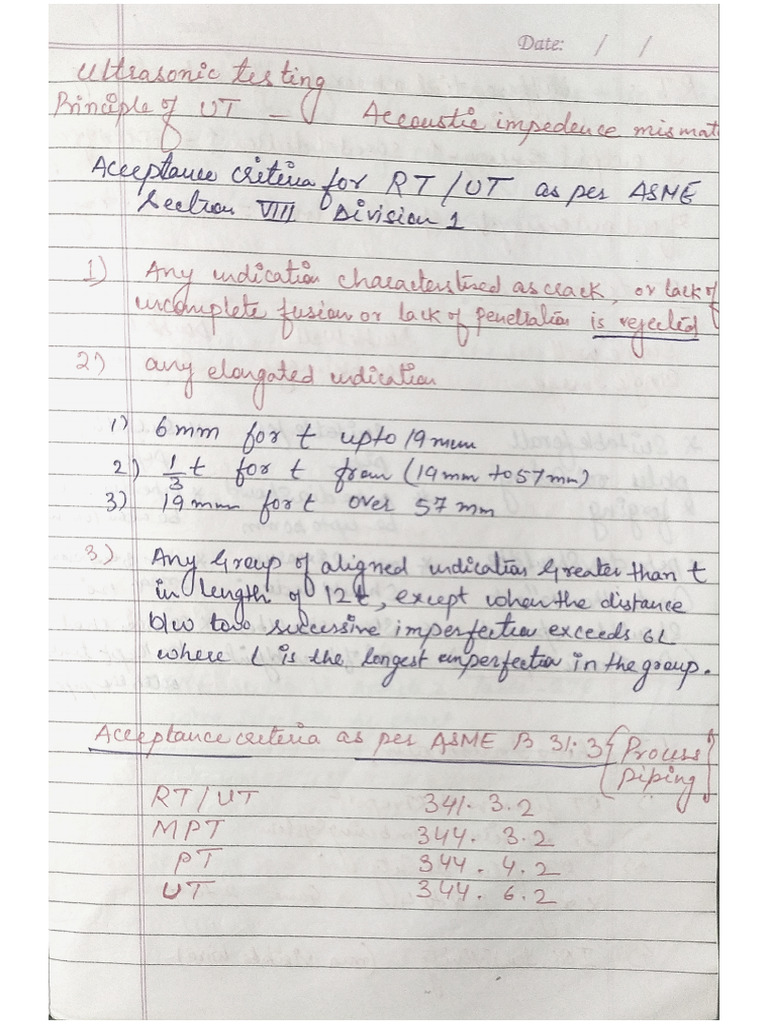 Date: / /
Ultrasonic testing
Principle of UT - Accoustic impedence mismat
Acceptance criteria for RT/UT as per ASME
Section VIII Division 1
1) Any indication characterstized as crack, or lack of
incomplete fusion or lack of penetration is rejected
2) any elongated indication
1) 6mm for t upto 19mm
2) 1/3 t for t from (19mm to 57mm)
3) 19mm for t over 57 mm
3) Any Group of aligned indication Greater than t
in length of 12t, except when the distance
b/w two successive imperfection exceeds 6L
where L is the longest imperfection in the group.
Acceptance criteria as per ASME B 31.3 {Process
piping}
RT/UT 341.3.2
MPT 344.3.2
PT 344.4.2
UT 344.6.2